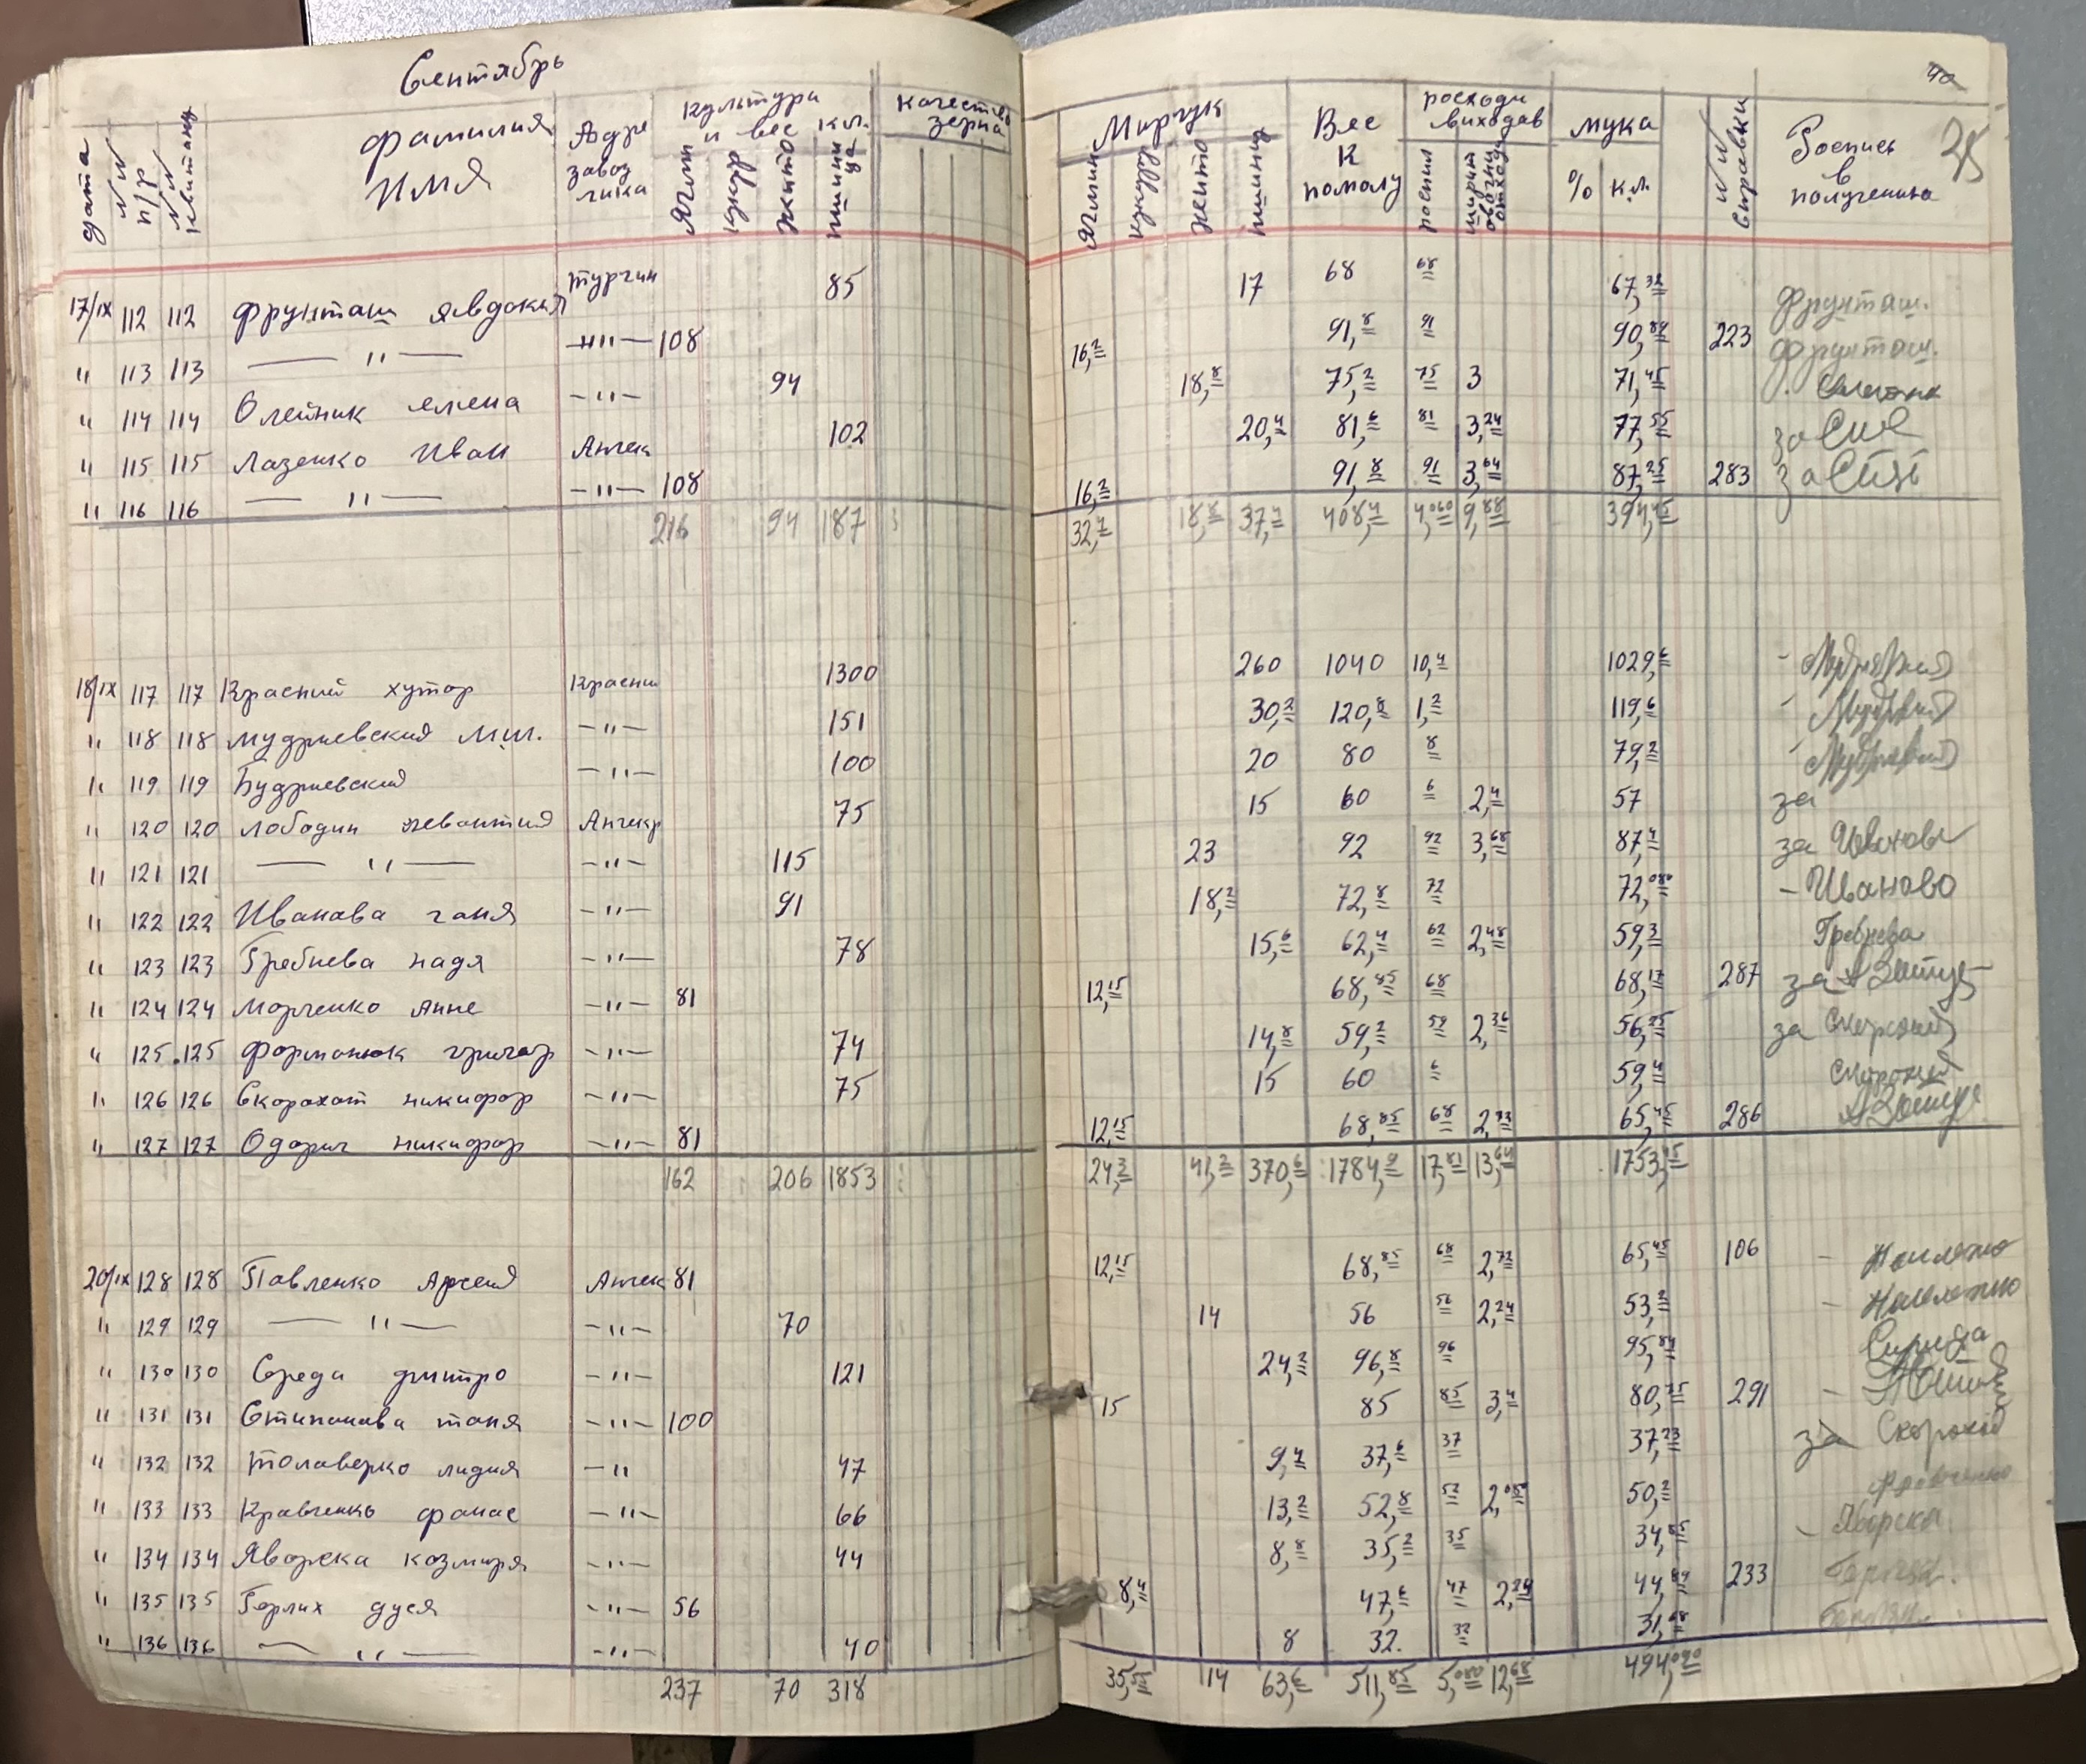 Сентябрь
дата N N п/р N N квитанц фамилия имя Адре заводчика культура и вес кл. ягмин кукур жито пшиница качество зерна
17/IX 112 112 Фрунташ явдокия тургин 85
" 113 113 — " — —"— 108
" 114 114 Олейник елена —"— 94
" 115 115 Лазенко Иван Анчек 102
" 116 116 — " — —"— 108
216 94 187
18/IX 117 117 Красний хутор Красни 1300
" 118 118 мудриевский —"— 151
" 119 119 Будриевский —"— 100
" 120 120 лободин Анчекр 75
" 121 121 — " — —"— 115
" 122 122 Иванава ганя —"— 91
" 123 123 Гребнева надя —"— 78
" 124 124 марченко Анне —"— 81
" 125 125 форманюк григор —"— 74
" 126 126 Скорохат никифор —"— 75
" 127 127 Одарич никифор —"— 81
162 206 1853
20/IX 128 128 Павленко Арсений Анчек 81
" 129 129 — " — —"— 70
" 130 130 Середа дмитро —"— 121
" 131 131 Стипанава таня —"— 100
" 132 132 толаверко лидия —" 47
" 133 133 Кравченко фанас —"— 66
" 134 134 Яворска козмиря —"— 44
" 135 135 Герлих дуся —"— 56
" 136 136 — " — —"— 40
237 70 318
40
38
Мирчук ягмин кукуруз жито пшиниц Вес к помолу росходи виходав роспил мука % кл. N N Роспись в получении
17 68 68 67,32 Фрунташ.
16,2 91,8 91 90,89 223 Фрунташ.
18,8 75,2 75 3 71,45
20,4 81,6 81 3,24 77,55 за
16,2 91,8 91 3,64 87,25 283 за
32,4 18,8 37,4 408,4 4,060 9,88 394,45
260 1040 10,4 1029,6
30,2 120,8 1,2 119,6
20 80 8 79,2
15 60 6 2,4 57 за
23 92 92 3,68 87,4 за
18,2 72,8 72 72,080 – Иваново
15,6 62,4 62 2,48 59,3 Гребнева
12,15 68,85 68 68,17 287 за
14,8 59,2 59 2,36 56,25 за
15 60 6 59,4
12,15 68,85 68 2,73 65,45 286
24,3 41,2 370,6 1784,9 17,81 13,64 1753,15
12,15 68,85 68 2,72 65,45 106
14 56 56 2,24 53,2
24,2 96,8 96 95,84
15 85 85 3,4 80,75 291
9,4 37,6 37 37,23 за Скороход
13,2 52,8 52 2,080 50,2
8,8 35,2 35 34,85 – Яворска
8,4 47,6 47 2,24 44,89 233
8 32. 32 31,68
35,55 14 63,6 511,85 5,080 12,68 494,090